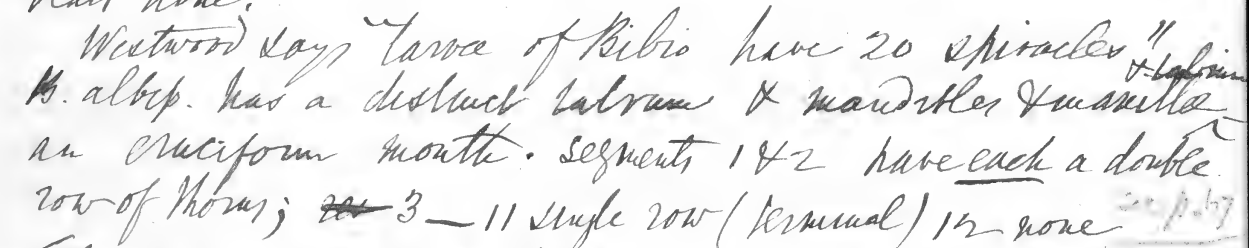 Westwood says "larvae of Bibio have 20 spiracles"
B. albip. has a distinct labrum & mandibles & maxillae & labium
an eruciform mouth. Segments 1 & 2 have each a double
row of thorns; 3—11 single row (terminal) 12 none